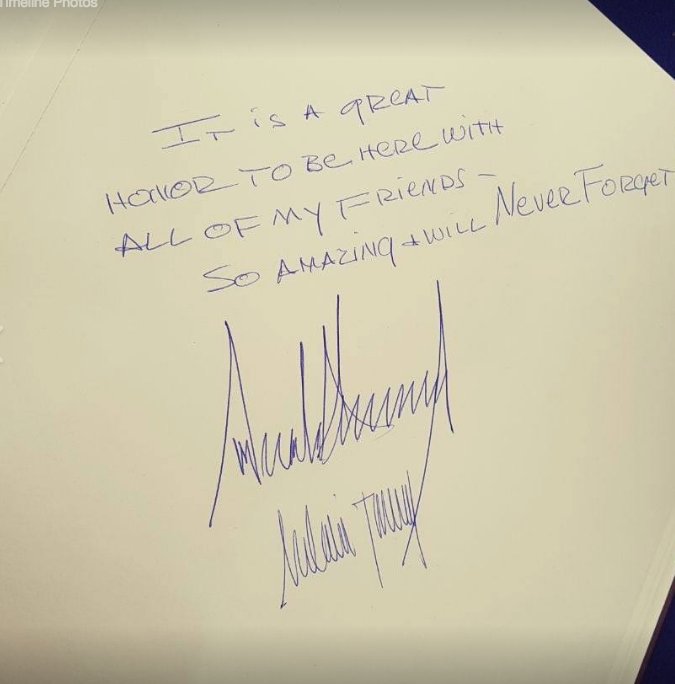 Timeline Photos
IT IS A GREAT
HONOR TO BE HERE WITH
ALL OF MY FRIENDS -
SO AMAZING + WILL NEVER FORGET
Donald Trump
Melania Trump